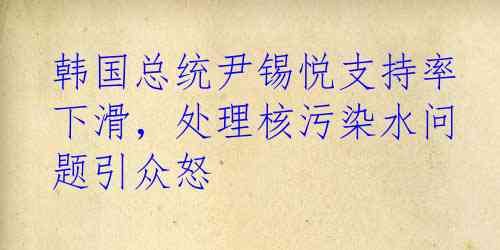 韩国总统尹锡悦支持率
下滑，处理核污染水问
题引众怒